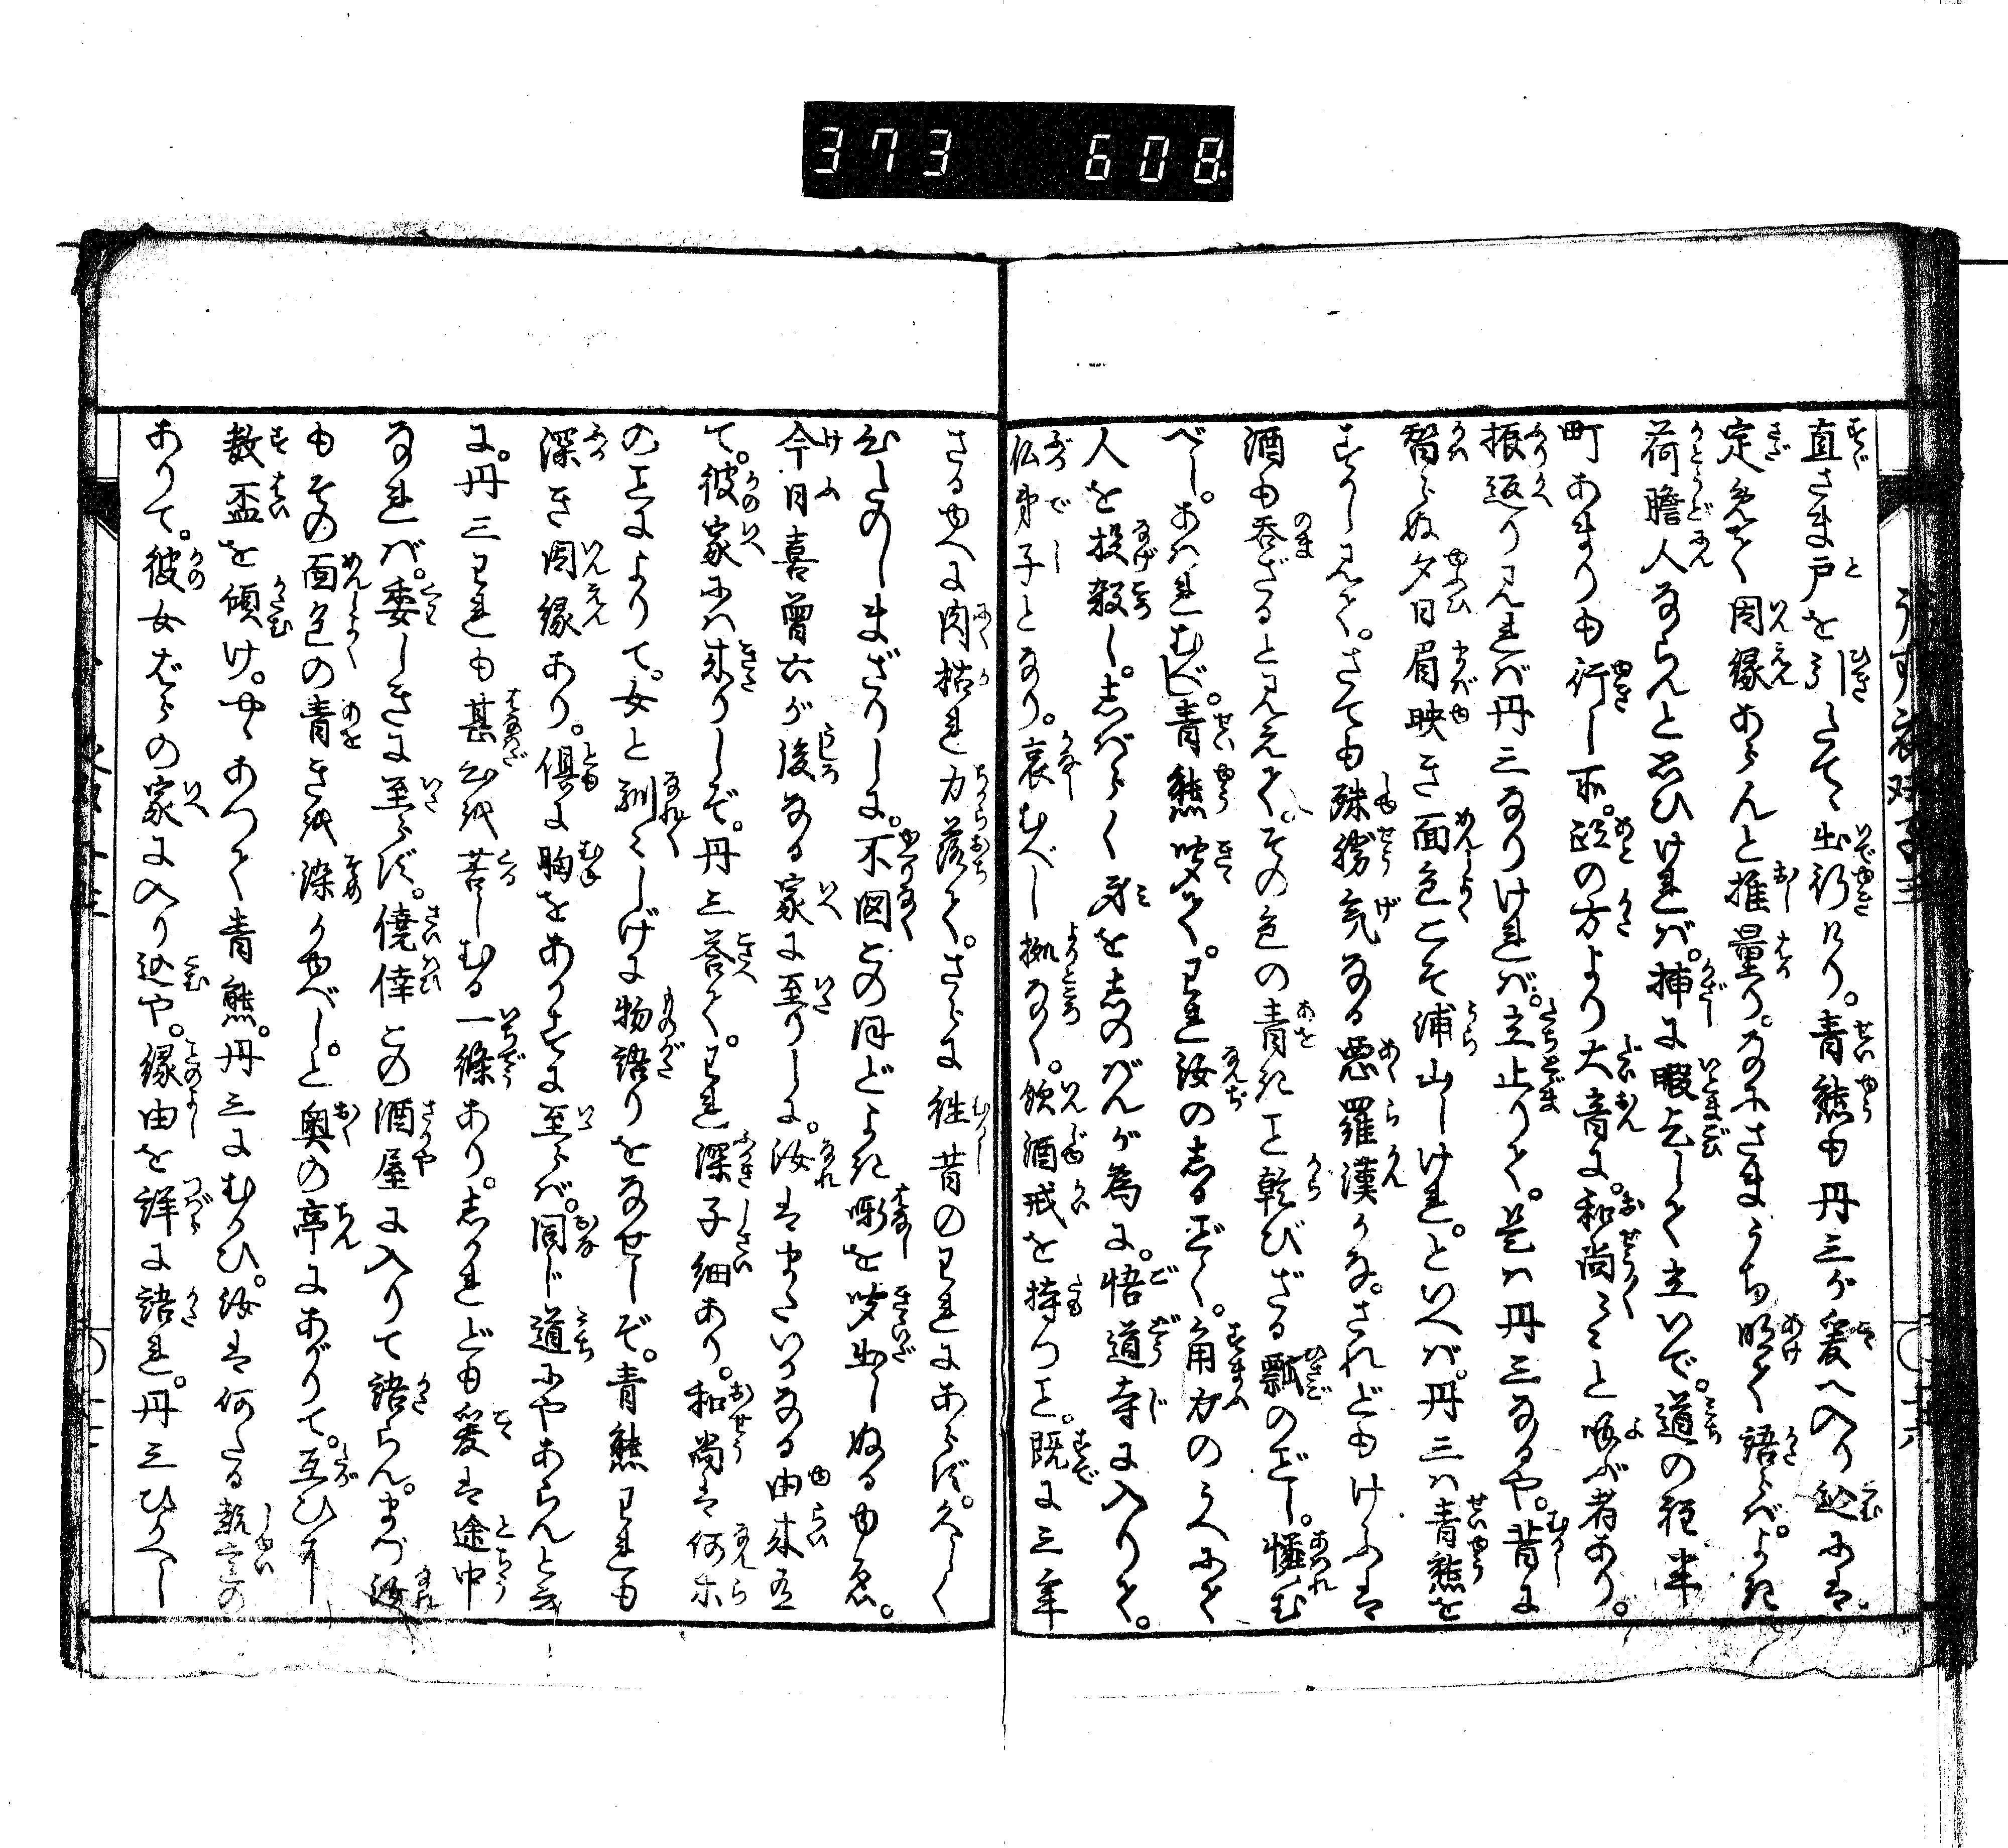 373 608
直さま戸を引たて出行けり。青熊も丹三が爰へ入り込みは
定めて因縁あらんと推量り。なにさまうち明て語らばよき
荷膽人ならんと思ひければ。挿に暇乞して立いで。道の程半
町あまりも行し所。跡の方より大音に。和尚〳〵と呼ぶ者あり。
振返り見れば丹三なりければ。立止りて。是は丹三なるや。昔に
替らぬ夕日眉映き面色こそ浦山しけれ。といへば。丹三は青熊を
すかし見て。さても殊勝気なる悪羅漢かな。されどもけふは
酒も呑ざると見えて。その色の青きこと乾びざる瓢のごとし。憐む
べし。あはれむべし。青熊聞て。われ汝のしるごとく。角力のうへにて
人を投殺し。しばらく身をしのばんが為に。悟道寺に入りて。
仏弟子となり。哀むべし拠なく。飲酒戒を持つこと。既に三年
さるゆへに肉枯れ力落て。さらに往昔のわれにあらず。久しく
たのしまざりしに。不図このほどよき噺を聞出しぬるゆゑ。
今日喜曽六が後なる家に至りしに。汝はまたいかなる由来有
て。彼家には来りしぞ。丹三答て。われ深き子細あり。和尚は何ら
のことによりて。女と馴々しげに物語りをなせしぞ。青熊われも
深き因縁あり。倶に胸をあかすに至らば。同じ道にやあらんと云
に。丹三われも甚心を苦しむる一條あり。しかれども爰は途中
なれば。委しきに至らず。僥倖この酒屋に入りて語らん。まづ汝
もその面色の青きを染かゆべし。と奥の亭にあがりて。互ひに
数盃を傾け。やゝあつて青熊。丹三にむかひ。汝は何たる
ありて。彼女ばらの家に入り込や。縁由を詳に語れ。丹三ひかへし